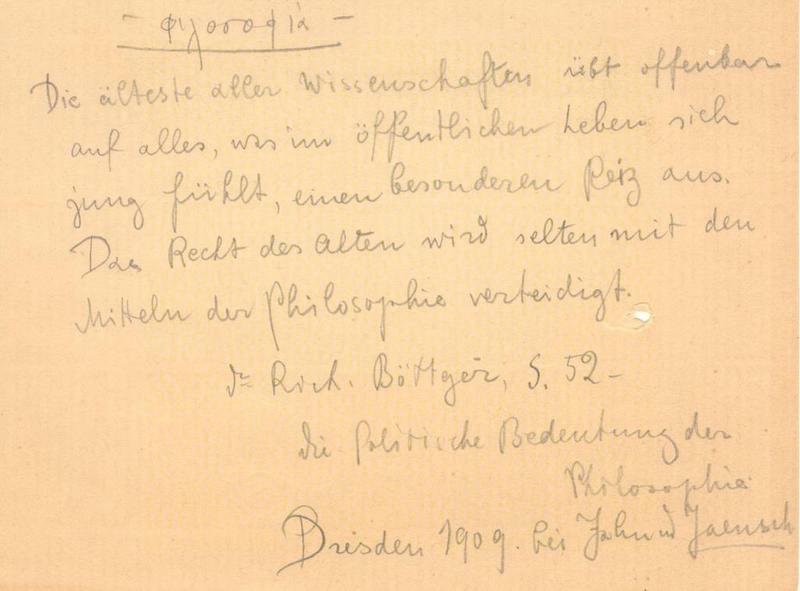 - φιλοσοφία -
Die älteste aller Wissenschaften übt offenbar
auf alles, was im öffentlichen Leben sich
jung fühlt, einen besonderen Reiz aus.
Das Recht des Alten wird selten mit den
Mitteln der Philosophie verteidigt.
Dr Rich. Böttger, S. 52 -
die politische Bedeutung der
Philosophie
Dresden 1909. bei Jahn u Jaensch